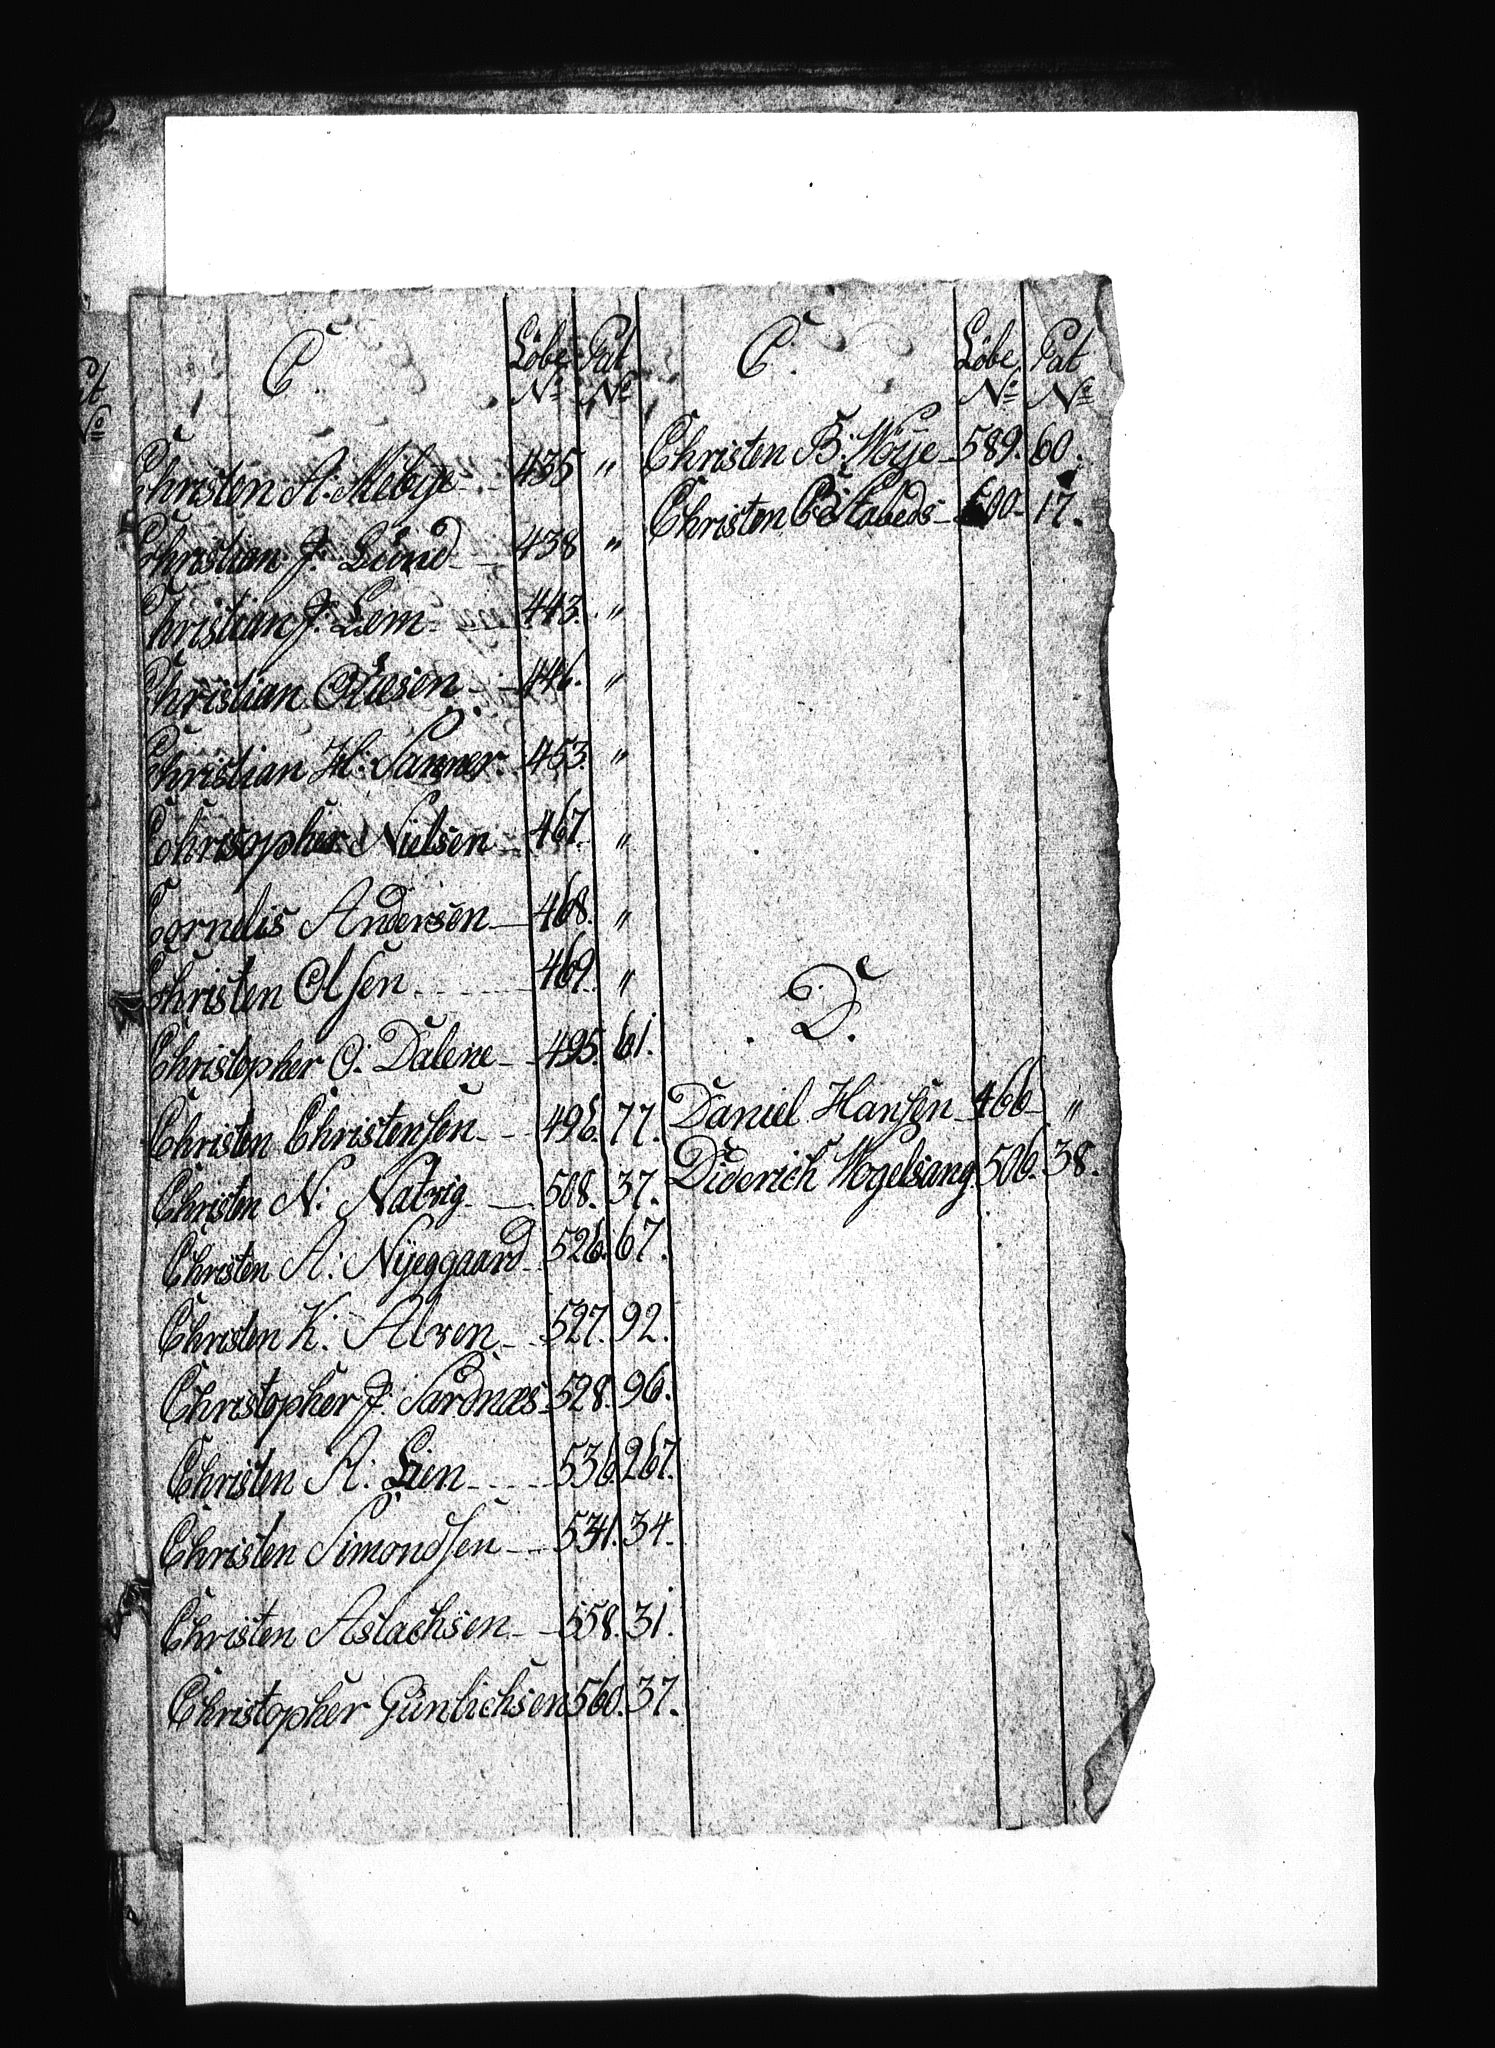 C.
Löbe Pat
No No
Christen A: Mebye 435 "
Christian J: Lund 438 "
Christian J: Lem 443. "
Christian Olsen 446. "
Christian H: Sanner. 453. "
Christopher Nielsen 467. "
Cornelis Andersen 468. "
Christen Olsen 469. "
Christopher O: Dalene 495. 61.
Christen Christensen 496. 77.
Christen N: Natvig 508. 37.
Christen A: Nyeggaard 526. 67.
Christen K: Alren 527. 92.
Christopher J: Sardnæs 528. 96.
Christen A: Lien 536. 267.
Christen Simondsen 541. 34.
Christen Aslachsen 558. 31.
Christopher Günlichsen 560. 37.
C.
Löbe Pat
No No
Christen B: Woje 589. 60.
Christen Stabeds 600 17.
D.
Daniel Hansen 466 "
Diderich Wogelsang 506. 38.